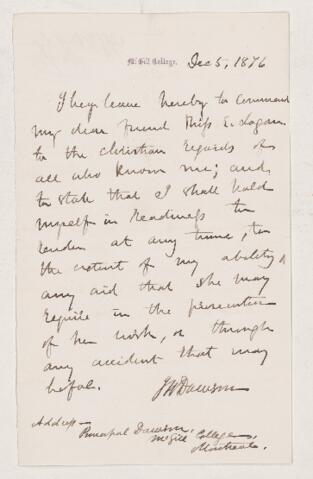 McGill College. Dec 5, 1876
I beg leave hereby to commend
my dear friend Miss E. Logan
to the christian regards of
all who know me; and
to state that I shall hold
myself in readiness to
tender at any time, to
the extent of my ability,
any aid that she may
require in the prosecution
of her work, or through
any accident that may
befal.
JWDawson
Address
Principal Dawson,
McGill College,
Montreal.